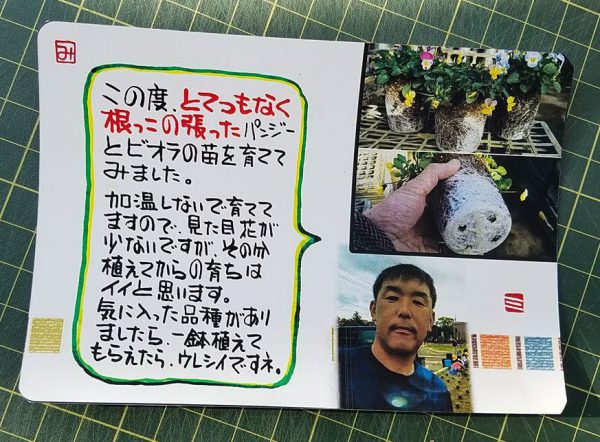 み
この度、とてつもなく
根っこの張ったパンジー
とビオラの苗を育てて
みました。
加温しないで育てて
ますので、見た目花が
少ないですが、その分
植えてからの育ちは
イイと思います。
気に入った品種があり
ましたら、一鉢植えて
もらえたら、ウレシイですネ。